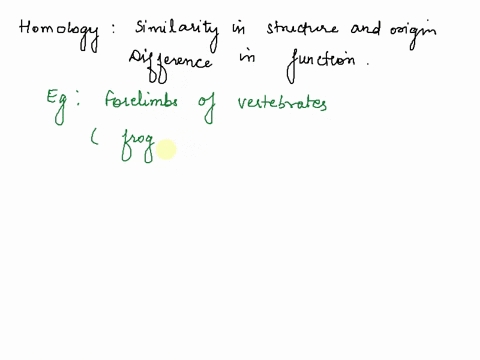 Homology : Similarity in structure and origin
Difference in function .
Eg : Forelimbs of vertebrates
( frog